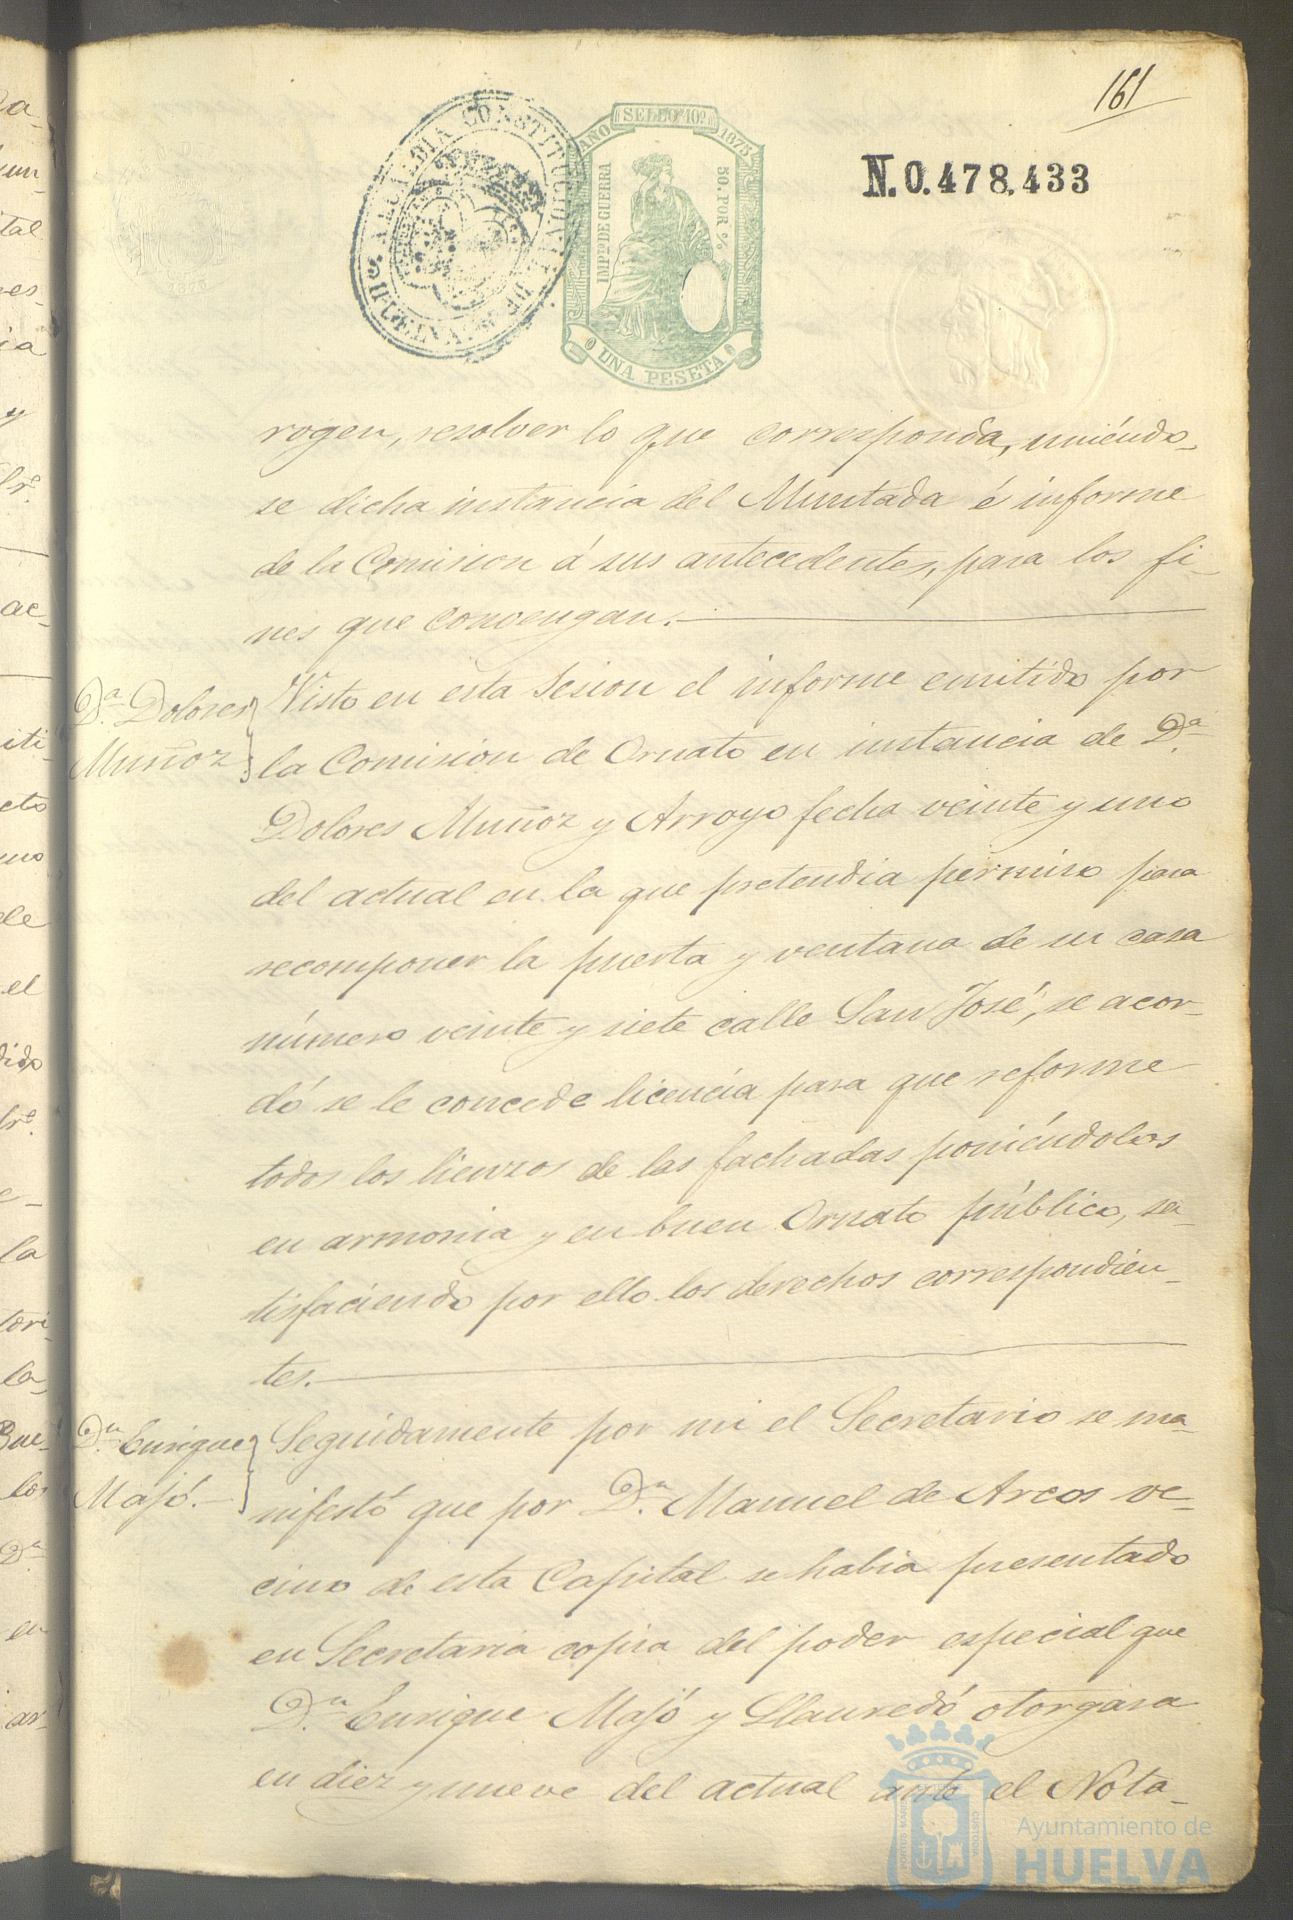 161
ALCALDIA CONSTITUCIONAL DE HUELVA
AÑO SELLO 10º 1875
IMPTO DE GUERRA
50. POR %
UNA PESETA
N. 0.478,433
rogen, resolver lo que corresponda, uniéndo-
se dicha instancia del Muntada é informe
de la Comision á sus antecedentes, para los fi-
nes que convengan.
Dª Dolores
Muñoz
Visto en esta Sesion el informe emitido por
la Comision de Ornato en instancia de Dª
Dolores Muñoz y Arroyo fecha veinte y uno
del actual en la que pretendia permiso para
recomponer la puerta y ventana de su casa
número veinte y siete calle San José, se acor-
dó se le concede licencia para que reforme
todos los lienzos de las fachadas poniéndolos
en armonia y en buen Ornato público, sa-
tisfaciendo por ello los derechos correspondien-
tes.
Dn Enrique
Majó.
Seguidamente por mi el Secretario se ma-
nifestó que por Dn Manuel de Arcos ve-
cino de esta Capital se habia presentado
en Secretaria copia del poder especial que
Dn Enrique Majó y Llauredó otorgara
en diez y nueve del actual ante el Nota-
Ayuntamiento de
HUELVA